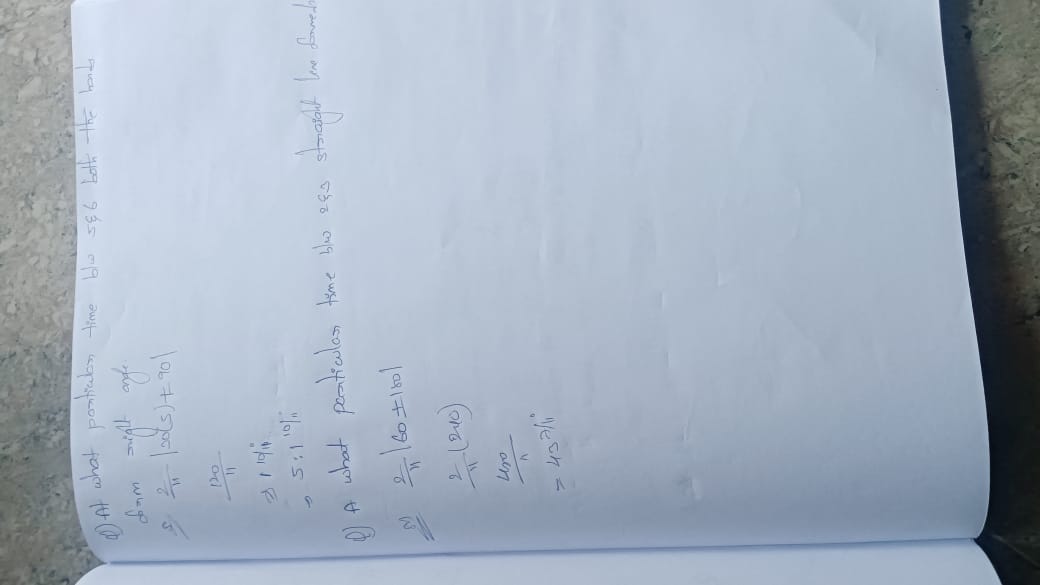 Q) At what particular time b/w 5&6 both the hands
form right angle.
2/11 |30(5) ± 90|
120/11
⇒ 10 10/11
→ 5:10 10/11
Q) A what particular time b/w 2&3 straight line formed
2/11 |60 ± 180|
2/11 (240)
480/11
= 43 7/11